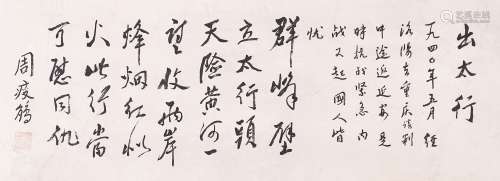 出太行
一九四〇年五月 经
洛陽去重庆談判
中途返延安是
時抗战緊急 内
战又起國人皆
忧
群峰壁
立太行頭
天險黄河一
望收兩岸
烽烟红似
火此行當
可慰同仇
周瘦鵑